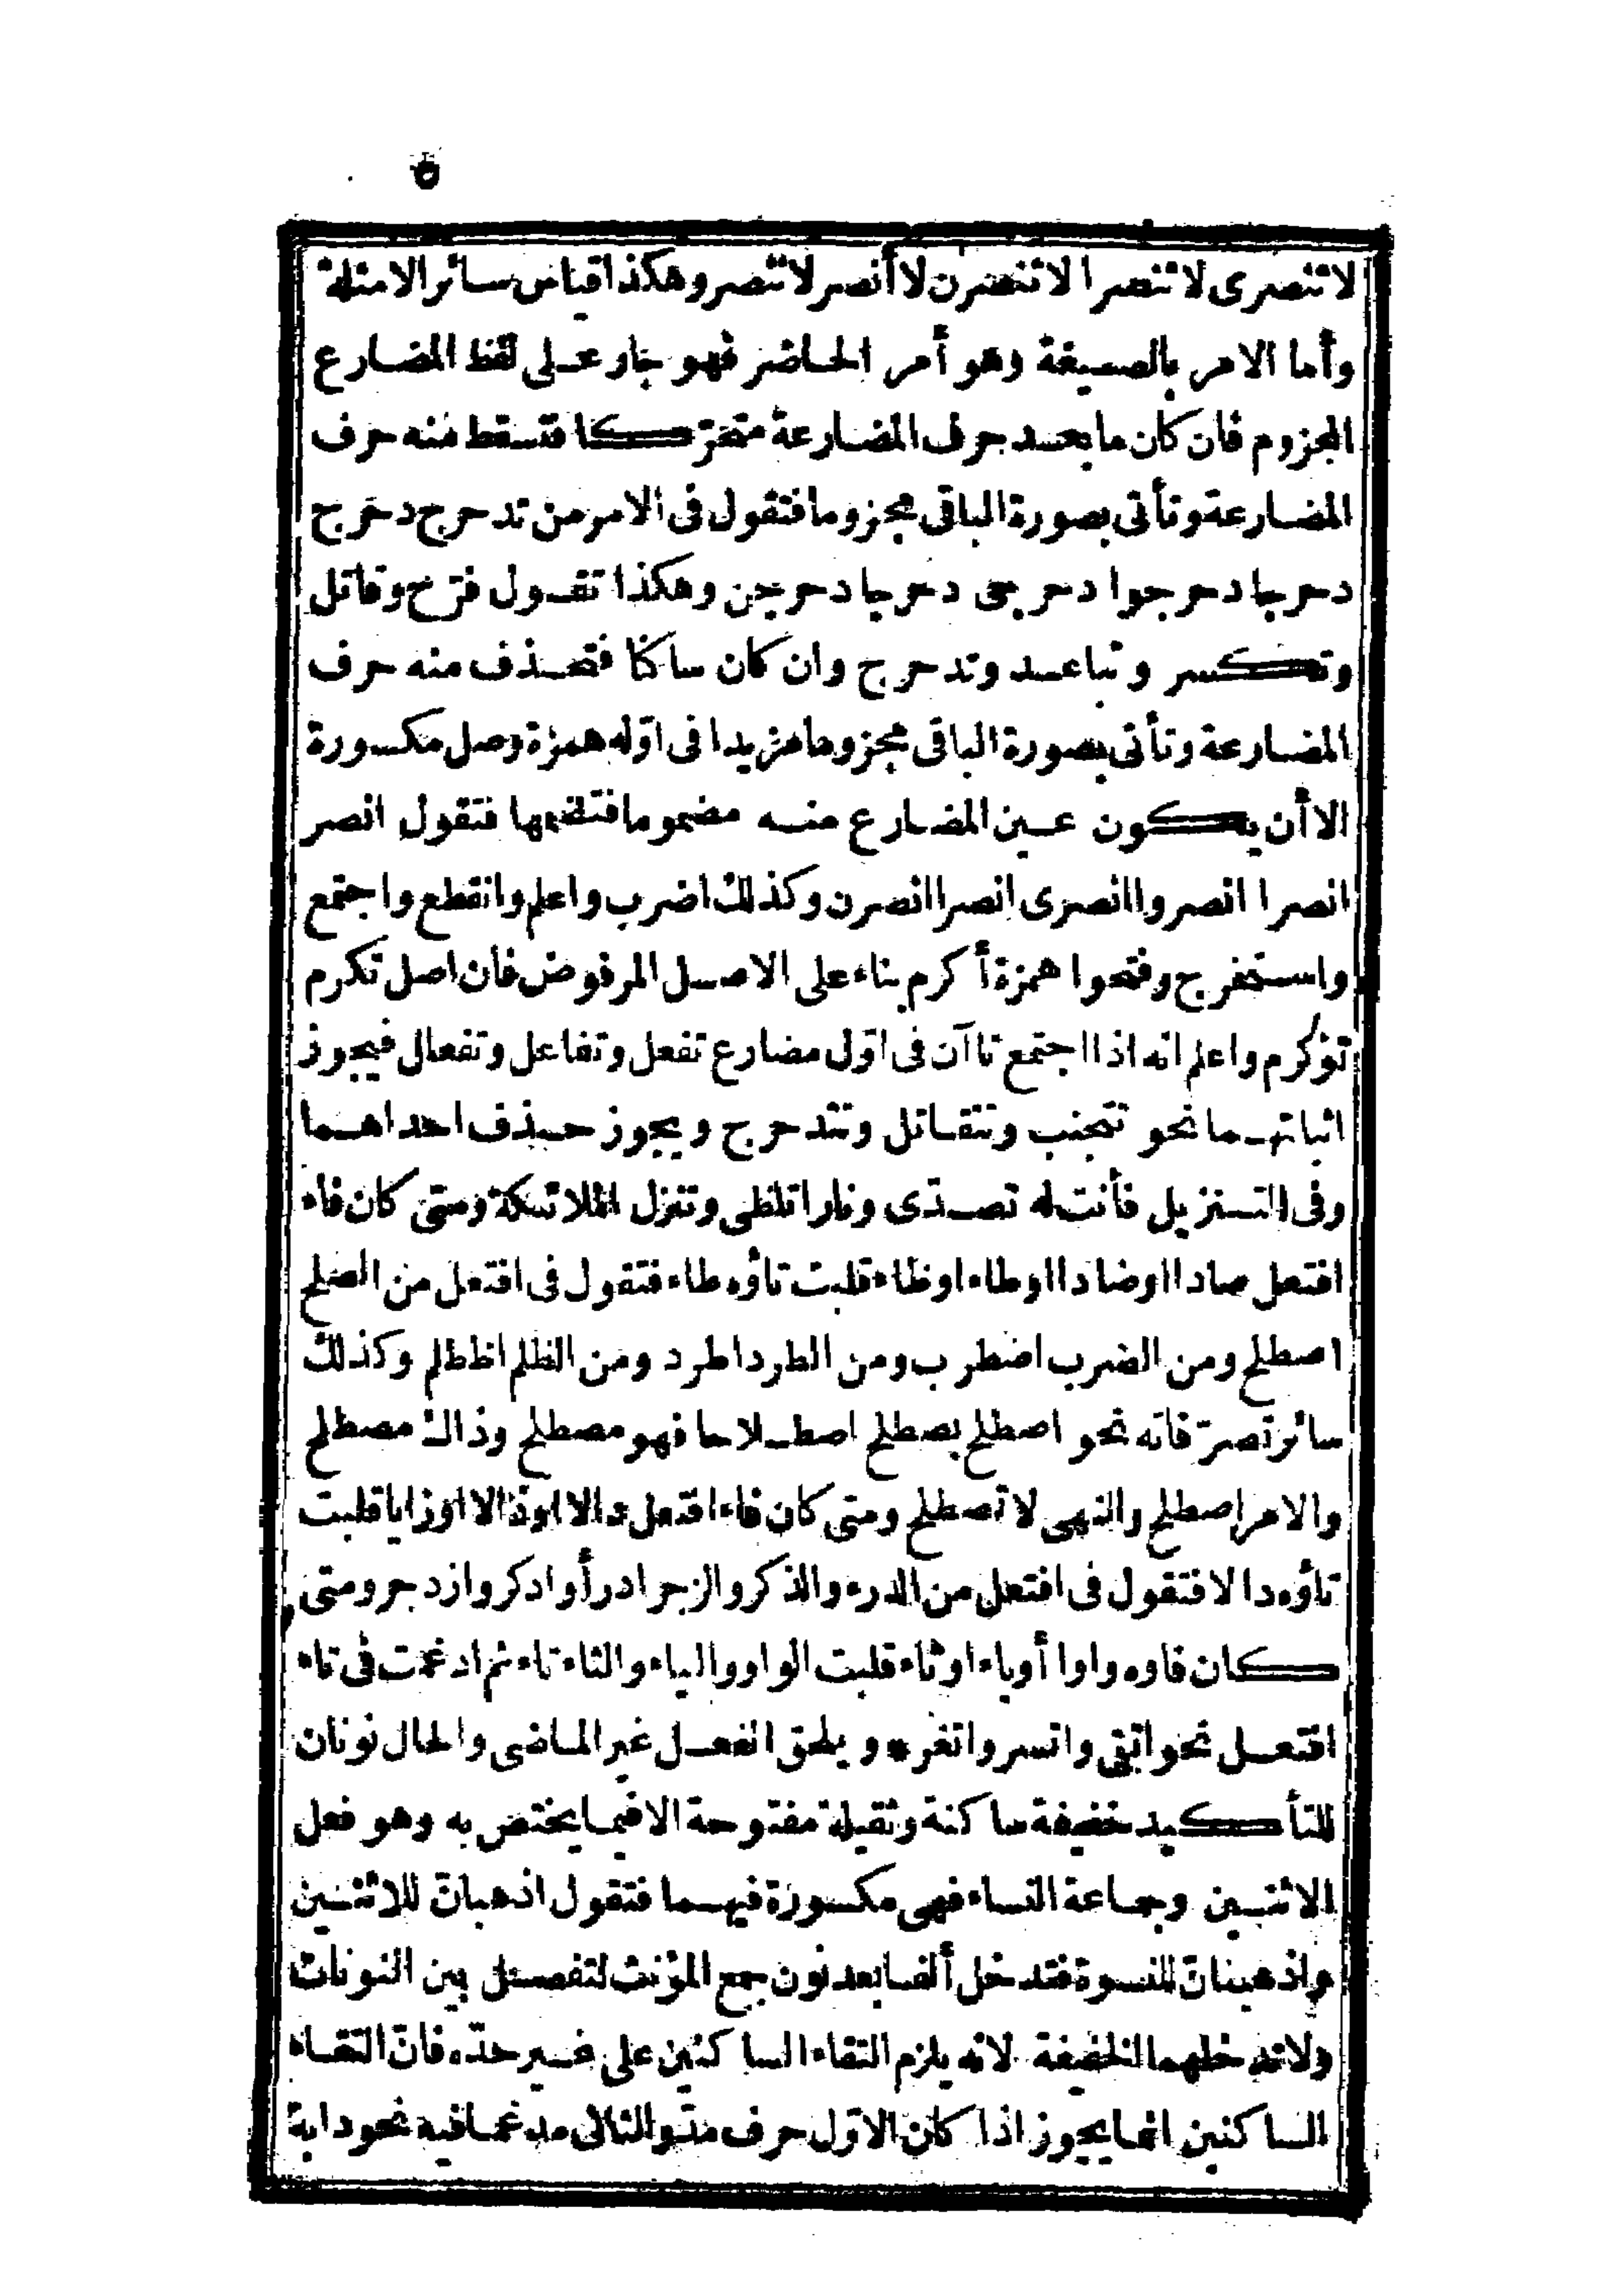 ٥
لا تنصرى لا تنصرا لا تنصرن لا أنصر لا ننصر وهكذا قياس سائر الامثلة
وأما الامر بالصيغة وهو أمر الحاضر فهو جار على لفظ المضارع
المجزوم فان كان ما بعد حرف المضارعة متحرّكا فتسقط منه حرف
المضارعة وتأتى بصورة الباقى مجزوما فتقول فى الامر من تدحرج دحرج
دحرجا دحرجوا دحرجى دحرجا دحرجن وهكذا تقول فرّح وقاتل
وتكسر وتباعد وتدحرج وان كان ساكنا فتحذف منه حرف
المضارعة وتأتى بصورة الباقى مجزوما مزيدا فى اوّله همزة وصل مكسورة
الا أن يكون عين المضارع منه مضموما فتضمها فتقول انصر
انصرا انصروا انصرى انصرا انصرن وكذلك اضرب واعلم وانقطع واجتمع
واستخرج وفتحوا همزة أكرم بناء على الاصل المرفوض فان اصل تكرم
تؤكرم واعلم انه اذا اجتمع تاآن فى اوّل مضارع تفعل وتفاعل وتفعال فيجوز
اثباتهما نحو تتجنب وتتقاتل وتتدحرج ويجوز حذف احداهما
وفى التنزيل فأنت له تصدّى ونارا تلظى وتنزل الملائكة ومتى كان فاء
افتعل صادا او ضادا او طاء او ظاء قلبت تاؤه طاء فتقول فى افتعل من الصلح
اصطلح ومن الضرب اضطرب ومن الطرد اطرد ومن الظلم اظطلم وكذلك
سائر تصرّفاته نحو اصطلح يصطلح اصطلاحا فهو مصطلح وذاك مصطلح
والامر اصطلح والنهى لا تصطلح ومتى كان فاء افتعل دالا او ذالا او زايا قلبت
تاؤه دالا فتقول فى افتعل من الدرء والذكر والزجر ادرأ وادكر وازدجر ومتى
كان فاوه واوا أوياء او ثاء قلبت الواو والياء والثاء تاء ثم ادغمت فى تاء
افتعل نحو اتقى واتسر واتغر * ويلحق الفعل غير الماضى والحال نونان
للتأكيد خفيفة ساكنة وثقيلة مفتوحة الا فيما يختص به وهو فعل
الاثنين وجماعة النساء فهى مكسورة فيهما فتقول اذهبانّ للاثنين
واذهبنانّ للنسوة فتدخل ألفا بعد نون جمع المؤنث لتفصل بين النونات
ولا تدخلهما الخفيفة لانه يلزم التقاء الساكنين على غير حدّه فانّ التقاء
الساكنين انما يجوز اذا كان الاوّل حرف مدّ والثانى مدغما فيه نحو دابة